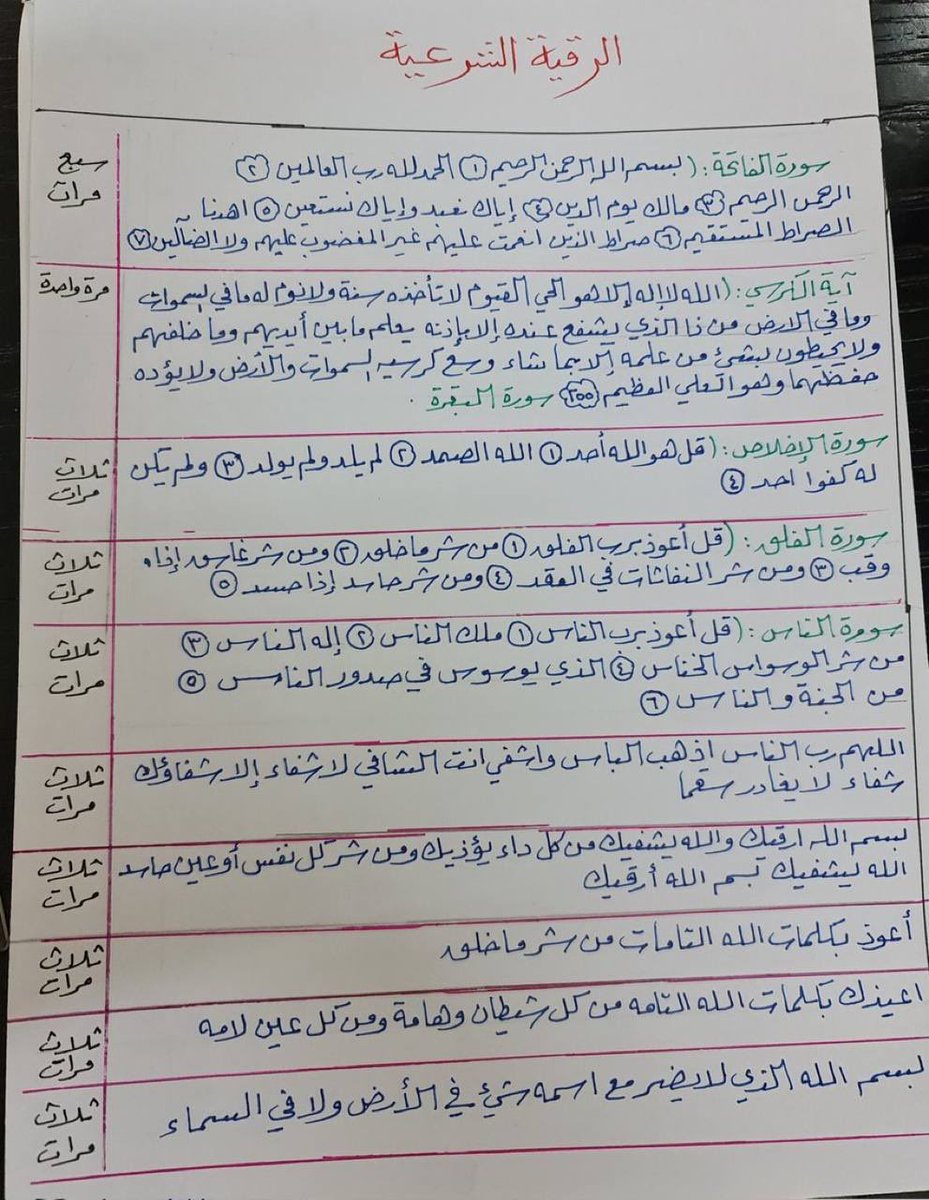 الرقية الشرعية
سبع
مرات
سورة الفاتحة : ( بسم الله الرحمن الرحيم ١ الحمد لله رب العالمين ٢
الرحمن الرحيم ٣ مالك يوم الدين ٤ إياك نعبد وإياك نستعين ٥ اهدنا
الصراط المستقيم ٦ صراط الذين انعمت عليهم غير المغضوب عليهم ولا الضآلين ٧
مرة واحدة
آية الكرسي : ( الله لا إله إلا هو الحي القيوم لا تأخذه سنة ولا نوم له ما في السموات
وما في الارض من ذا الذي يشفع عنده إلا بإذنه يعلم ما بين أيديهم وما خلفهم
ولا يحيطون بشئ من علمه إلا بما شاء وسع كرسيه السموات والأرض ولا يؤده
حفظهما وهو العلي العظيم ٢٥٥ سورة البقرة .
ثلاث
مرات
سورة الإخلاص : ( قل هو الله أحد ١ الله الصمد ٢ لم يلد ولم يولد ٣ ولم يكن
له كفوا احد ٤
ثلاث
مرات
سورة الفلق : ( قل أعوذ برب الفلق ١ من شر ما خلق ٢ ومن شر غاسق إذا
وقب ٣ ومن شر النفاثات في العقد ٤ ومن شر حاسد إذا حسد ٥
ثلاث
مرات
سورة الناس : ( قل أعوذ برب الناس ١ ملك الناس ٢ إله الناس ٣
من شر الوسواس الخناس ٤ الذي يوسوس في صدور الناس ٥
من الجنة والناس ٦
ثلاث
مرات
اللهم رب الناس اذهب الباس واشفي انت الشافي لا شفاء إلا شفاؤك
شفاء لا يغادر سقما
ثلاث
مرات
بسم الله ارقيك والله يشفيك من كل داء يؤذيك ومن شر كل نفس أو عين حاسد
الله يشفيك بسم الله أرقيك
ثلاث
مرات
أعوذ بكلمات الله التامات من شر ما خلق
ثلاث
مرات
اعيذك بكلمات الله التامه من كل شيطان وهامة ومن كل عين لامه
ثلاث
مرات
بسم الله الذي لا يضر مع اسمه شئ في الأرض ولا في السماء